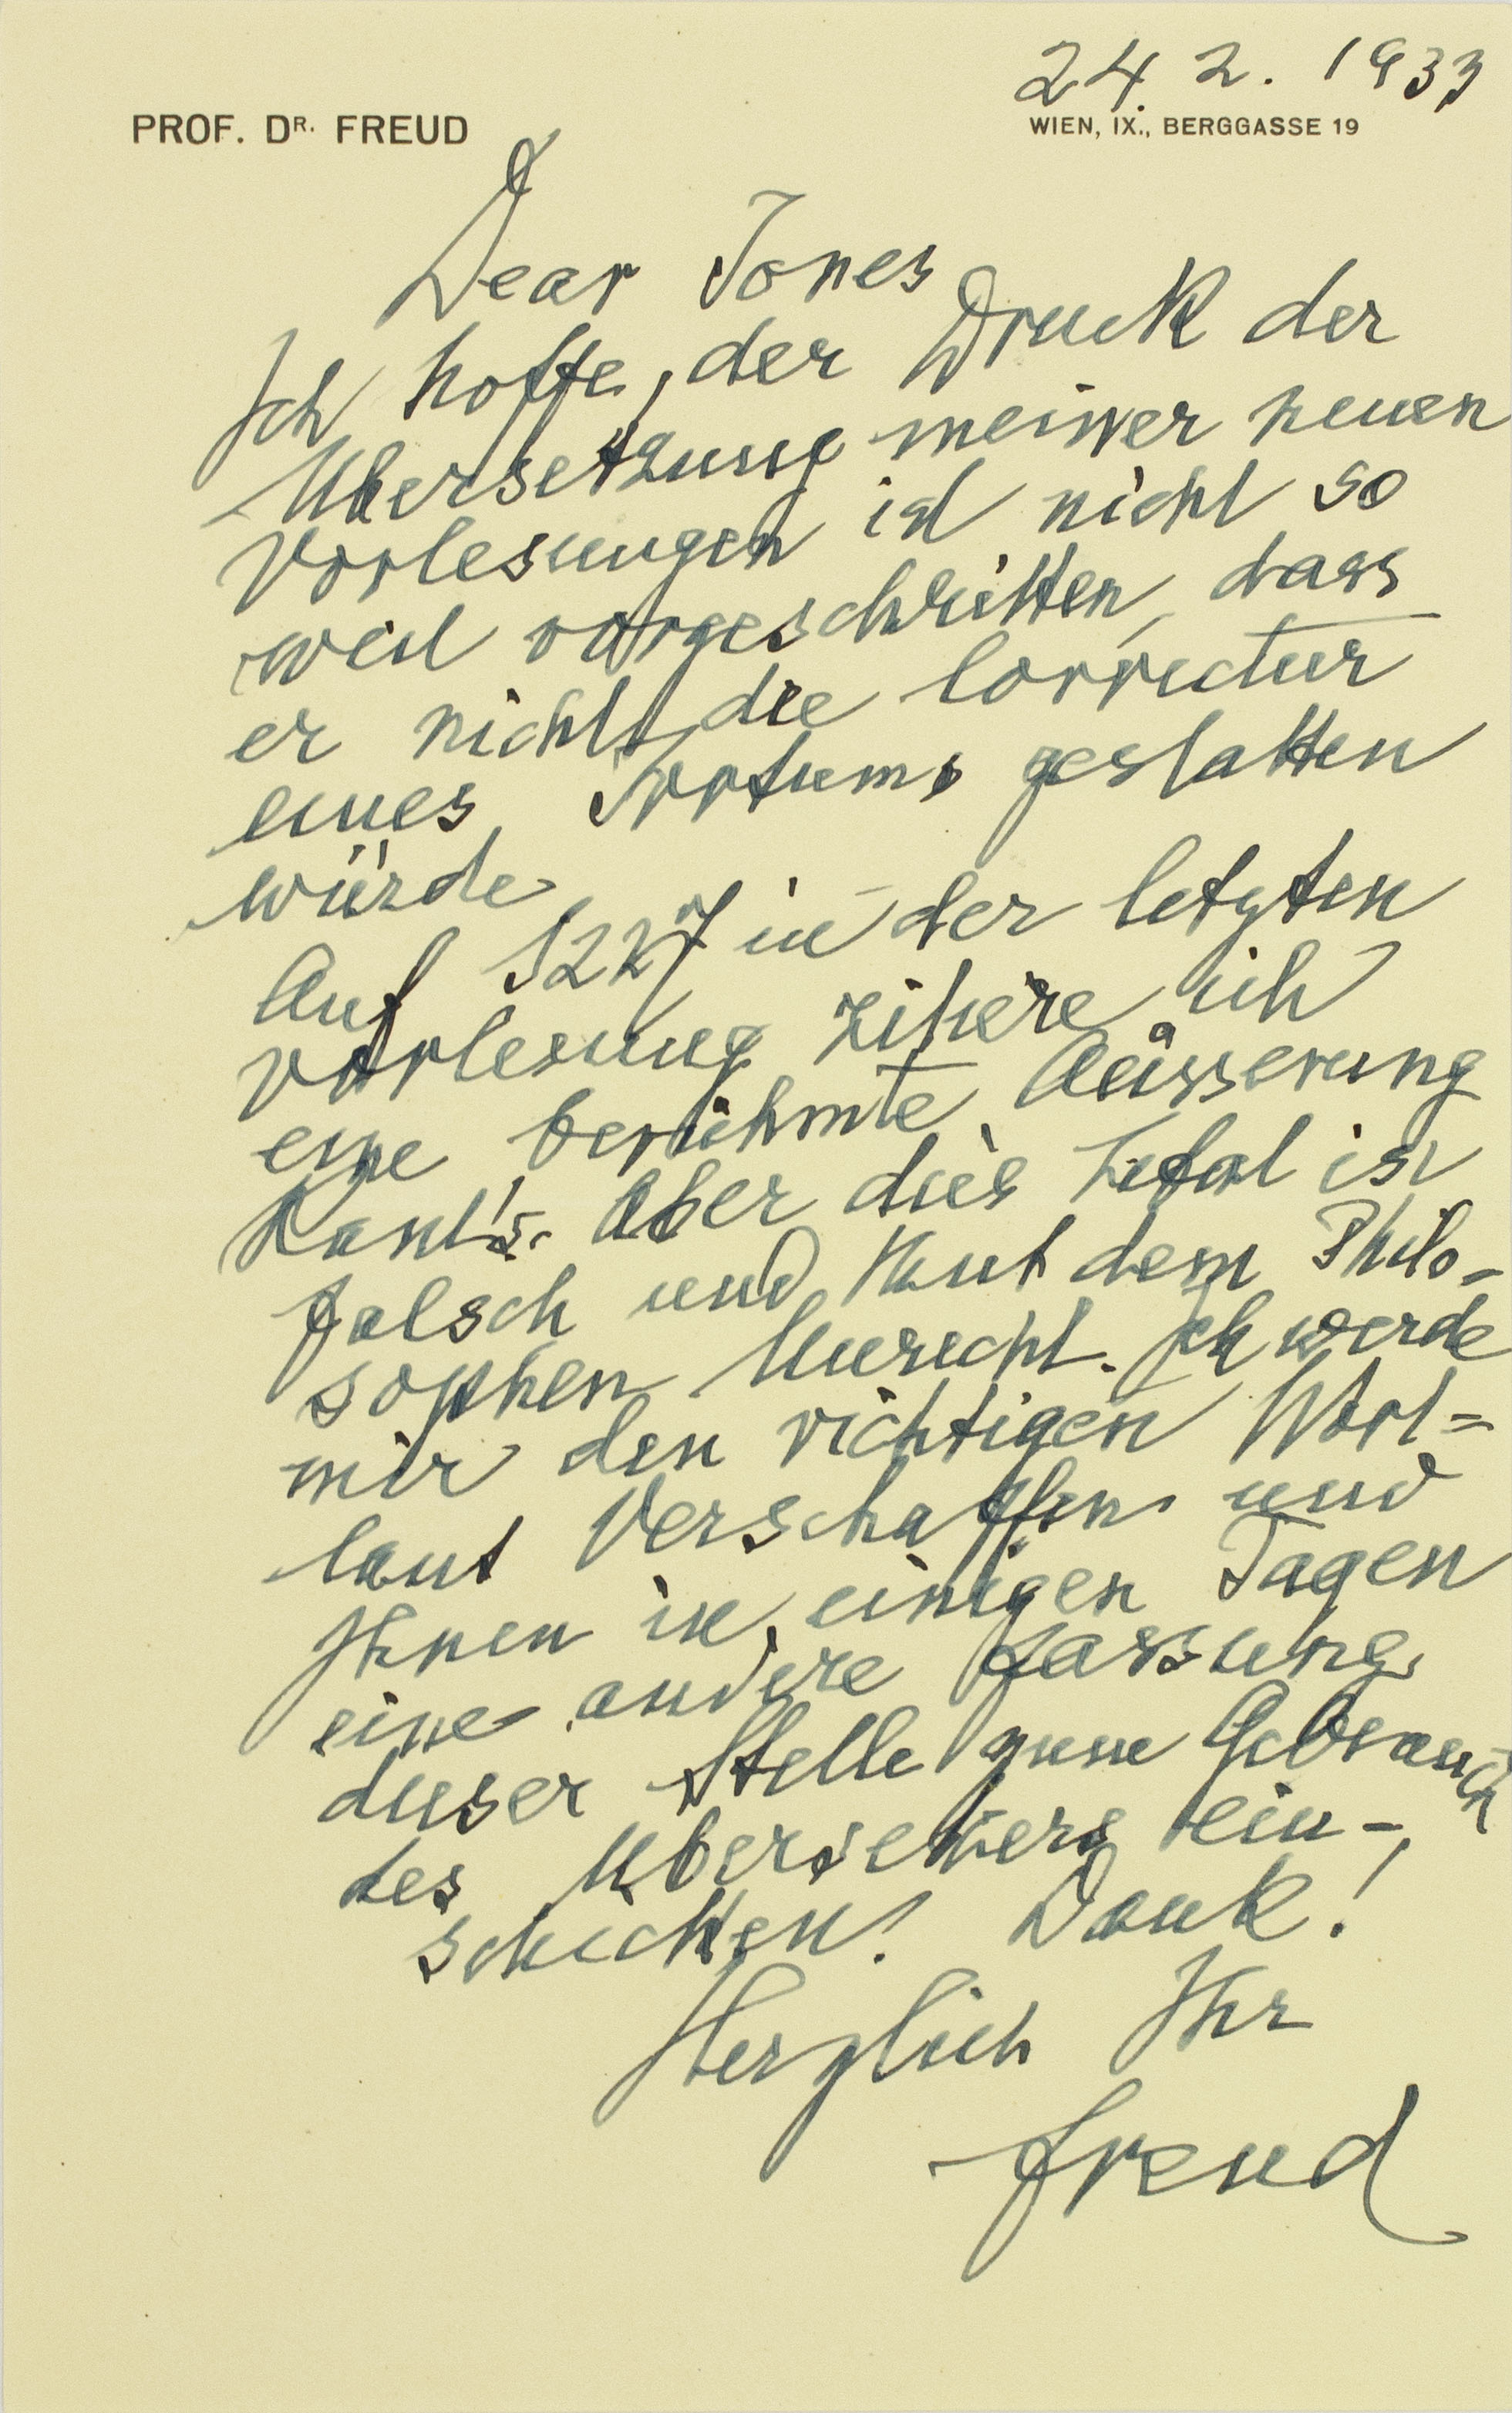 24. 2. 1933
PROF. DR. FREUD
WIEN, IX., BERGGASSE 19
Dear Jones
Ich hoffe, der Druck der
Übersetzung meiner neuen
Vorlesungen ist nicht so
weit vorgeschritten, dass
er nicht die Correctur
eines Irrtums gestatten
würde
Auf S 227 in der letzten
Vorlesung zitiere ich
eine berühmte Äusserung
Kant's. Aber dies Zitat ist
falsch und thut dem Philo-
sophen Unrecht. Ich werde
mir den richtigen Wort=
laut verschaffen und
Ihnen in einigen Tagen
eine andere Fassung
dieser Stelle zum Gebrauch
des Übersetzers ein-
schicken! Dank!
Herzlich Ihr
Freud